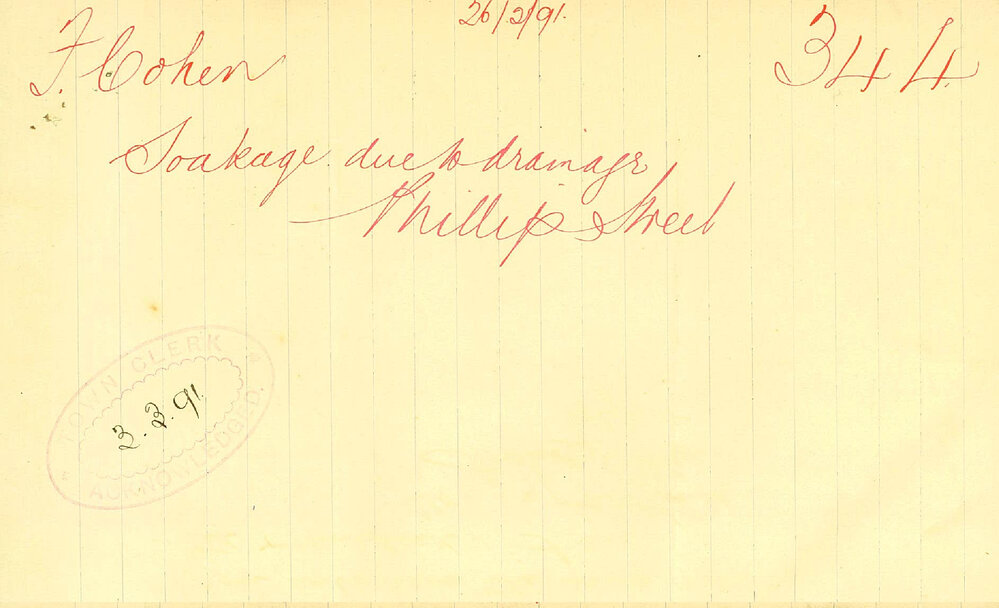 26/2/91.
F. Cohen
344
Soakage due to drainage
Phillip Street
TOWN CLERK
3.3.91
ACKNOWLEDGED.